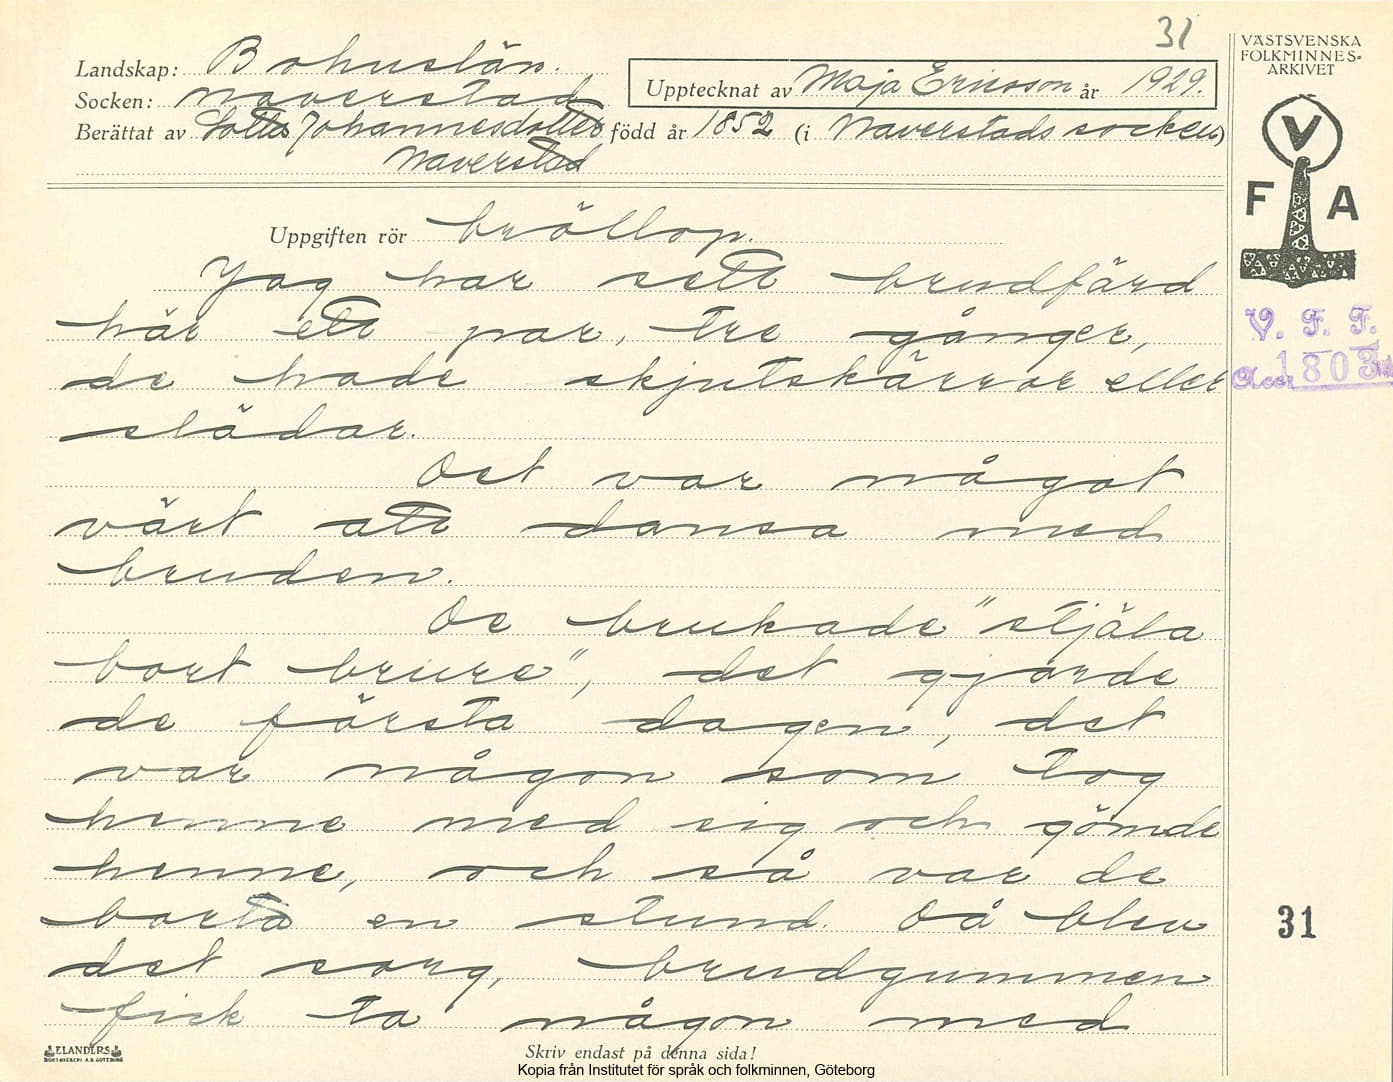 31
VÄSTSVENSKA
FOLKMINNES=
ARKIVET
Landskap: Bohuslän.
Upptecknat av Maja Ericsson år 1929.
Socken: Naverstad
Berättat av Lotta Johannesdotter född år 1852 (i Naverstads socken)
Naverstad
V
F A
Uppgiften rör bröllop.
Jag har sett brudfärd
här ett par, tre gånger,
de hade skjutskärror eller
slädar.
V. F. F.
Acc. 1803
Det var något
värt att dansa med
bruden.
De brukade "stjäla
bort brure", det gjorde
de första dagen, det
var någon som tog
henne med sig och gömde
henne, och så var de
borta en stund. Då blev
det sorg, brudgummen
fick ta någon med
31
ELANDERS
BOKTRYCKERI A.B. GÖTEBORG
Skriv endast på denna sida!
Kopia från Institutet för språk och folkminnen, Göteborg